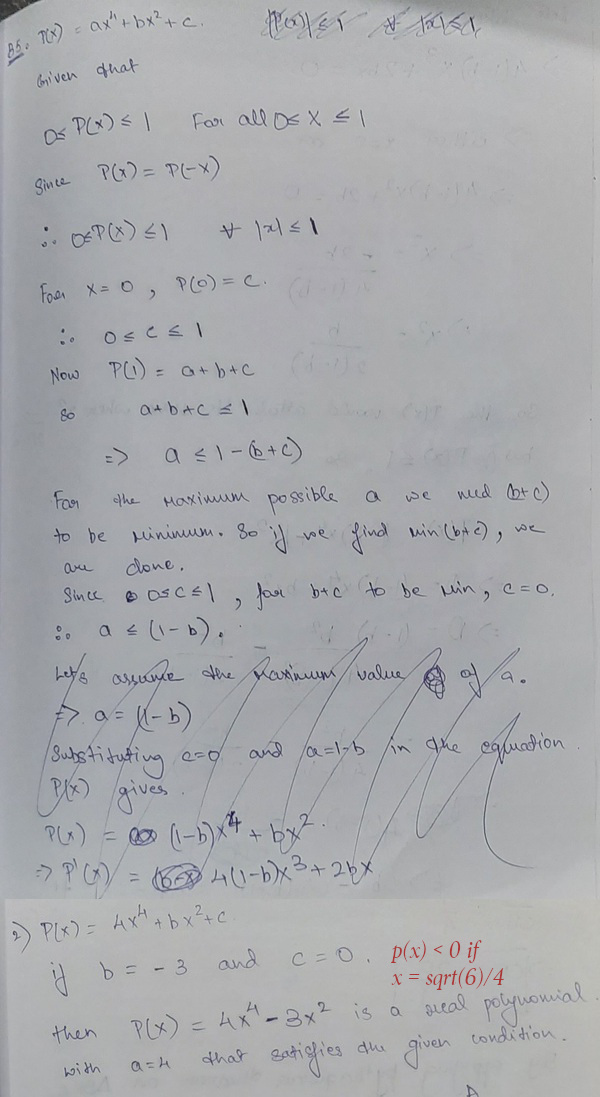 B5. P(x) = ax⁴ + bx² + c. |P(x)| ≤ 1 ∀ |x| ≤ 1.
Given that
0 ≤ P(x) ≤ 1 For all 0 ≤ x ≤ 1
Since P(x) = P(-x)
∴ 0 ≤ P(x) ≤ 1 ∀ |x| ≤ 1
For x = 0, P(0) = c.
∴ 0 ≤ c ≤ 1
Now P(1) = a + b + c
So a + b + c ≤ 1
=> a ≤ 1 - (b + c)
For the maximum possible a we need (b + c)
to be minimum. So if we find min(b+c), we
are done.
Since 0 ≤ c ≤ 1, for b+c to be min, c = 0.
∴ a ≤ (1 - b).
Let's assume the maximum value of a.
=> a = (1 - b)
Substituting c=0 and a=1-b in the equation
P(x) gives.
P(x) = (1-b)x⁴ + bx².
=> P'(x) = 4(1-b)x³ + 2bx
2) P(x) = 4x⁴ + bx² + c.
if b = -3 and c = 0. p(x) < 0 if
x = sqrt(6)/4
then P(x) = 4x⁴ - 3x² is a real polynomial
with a = 4 that satisfies the given condition.